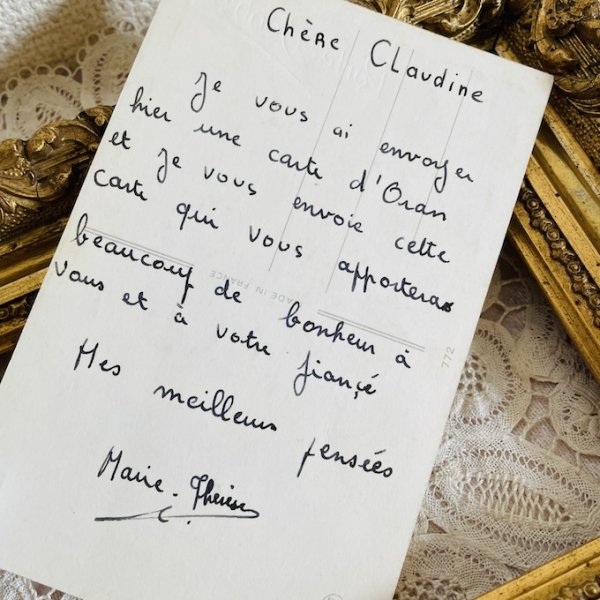 Chère Claudine
Je vous ai envoyer
hier une carte d'Oran
et je vous envoie cette
carte qui vous apporteras
beaucoup de bonheur à
vous et à votre fiançé
Mes meilleurs pensées
Marie-Thérèse
MADE IN FRANCE
772